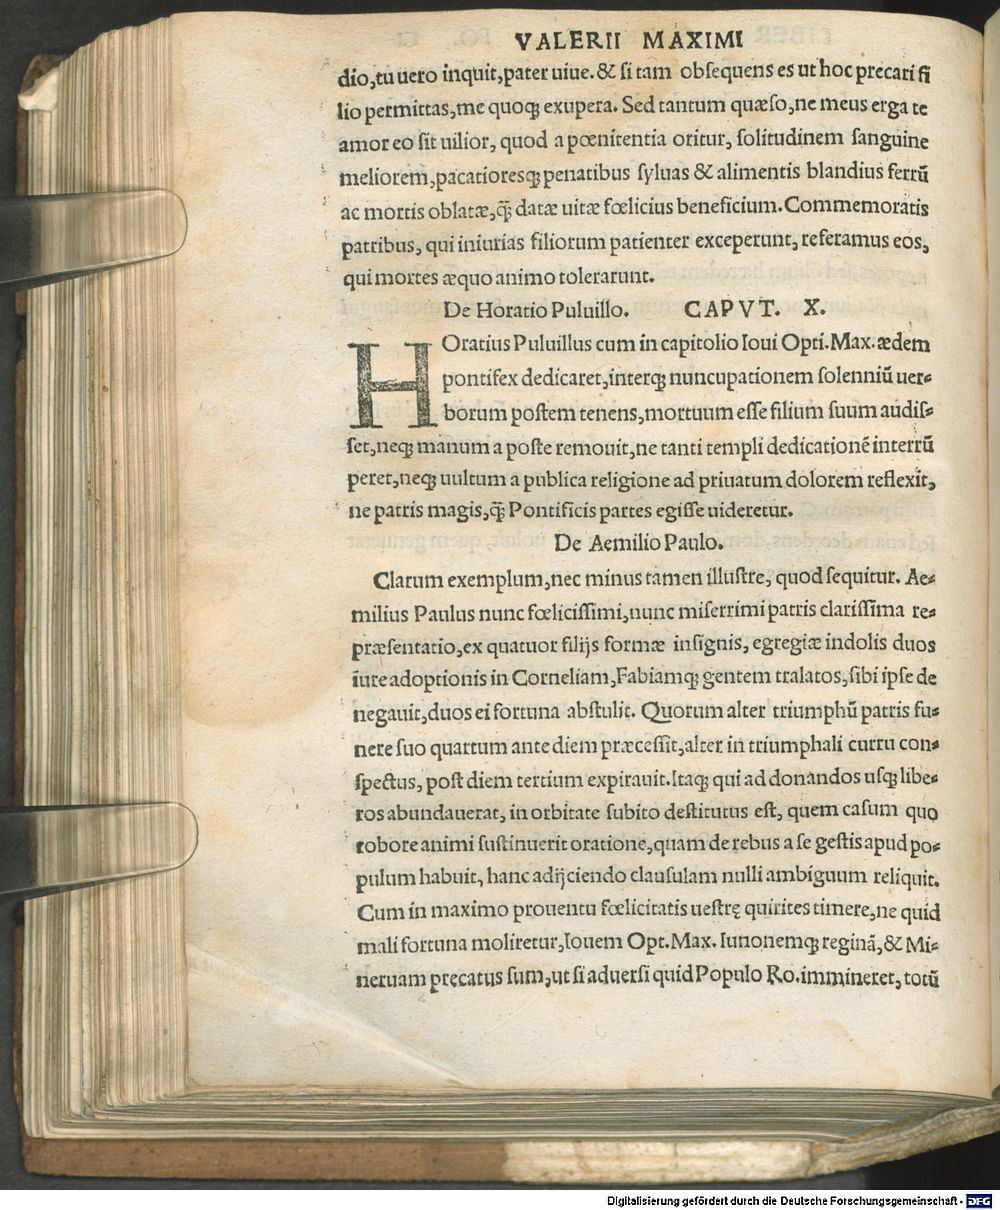 VALERII MAXIMI
dio,tu uero inquit,pater uiue.& si tam obsequens es ut hoc precari fi
lio permittas,me quoqꝫ exupera. Sed tantum quæso,ne meus erga te
amor eo sit uilior, quod a pœnitentia oritur, solitudinem sanguine
meliorem,pacatioresqꝫ penatibus syluas & alimentis blandius ferrũ
ac mortis oblatæ,q̃ȝ datæ uitæ fœlicius beneficium.Commemoratis
patribus, qui iniurias filiorum patienter exceperunt, referamus eos,
qui mortes æquo animo tolerarunt.
De Horatio Puluillo. CAPVT. X.
HOratius Puluillus cum in capitolio Ioui Opti.Max.ædem
pontifex dedicaret,interqꝫ nuncupationem solenniũ uer⸗
borum postem tenens,mortuum esse filium suum audis⸗
set,neqꝫ manum a poste remouit,ne tanti templi dedicationẽ interrũ
peret,neqꝫ uultum a publica religione ad priuatum dolorem reflexit,
ne patris magis,q̃ȝ Pontificis partes egisse uideretur.
De Aemilio Paulo.
Clarum exemplum,nec minus tamen illustre, quod sequitur. Ae⸗
milius Paulus nunc fœlicissimi,nunc miserrimi patris clarissima re⸗
præsentatio,ex quatuor filijs formæ insignis, egregiæ indolis duos
iure adoptionis in Corneliam,Fabiamqꝫ gentem tralatos,sibi ipse de
negauit,duos ei fortuna abstulit. Quorum alter triumphũ patris fu⸗
nere suo quartum ante diem præcessit,alter in triumphali curru con⸗
spectus, post diem tertium expirauit.Itaqꝫ qui ad donandos usqꝫ libe⸗
ros abundauerat, in orbitate subito destitutus est, quem casum quo
robore animi sustinuerit oratione,quam de rebus a se gestis apud po⸗
pulum habuit, hanc adijciendo clausulam nulli ambiguum reliquit.
Cum in maximo prouentu fœlicitatis uestrę quirites timere,ne quid
mali fortuna moliretur,Iouem Opt.Max. Iunonemqꝫ reginã,& Mi⸗
neruam precatus sum,ut si aduersi quid Populo Ro.immineret, totũ
Digitalisierung gefördert durch die Deutsche Forschungsgemeinschaft - DFG